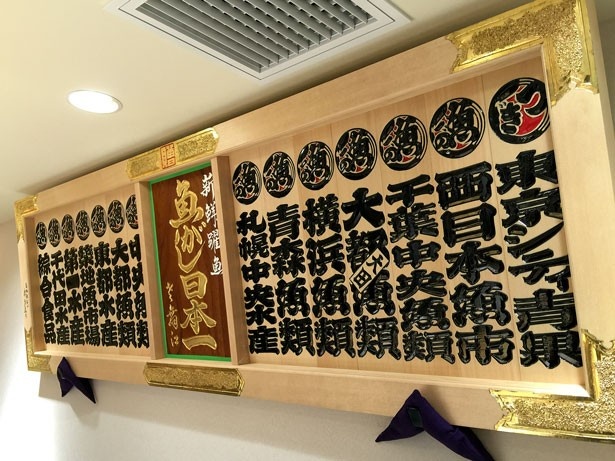 東京シティ青果
西日本魚市
千葉中央魚類
大都魚類
大田
横浜魚類
青森魚類
札幌中央水産
新鮮躍魚
魚がし日本一
中央魚類
大都魚類
東都水産
築地魚市場
第一水産
千代田水産
綜合食品